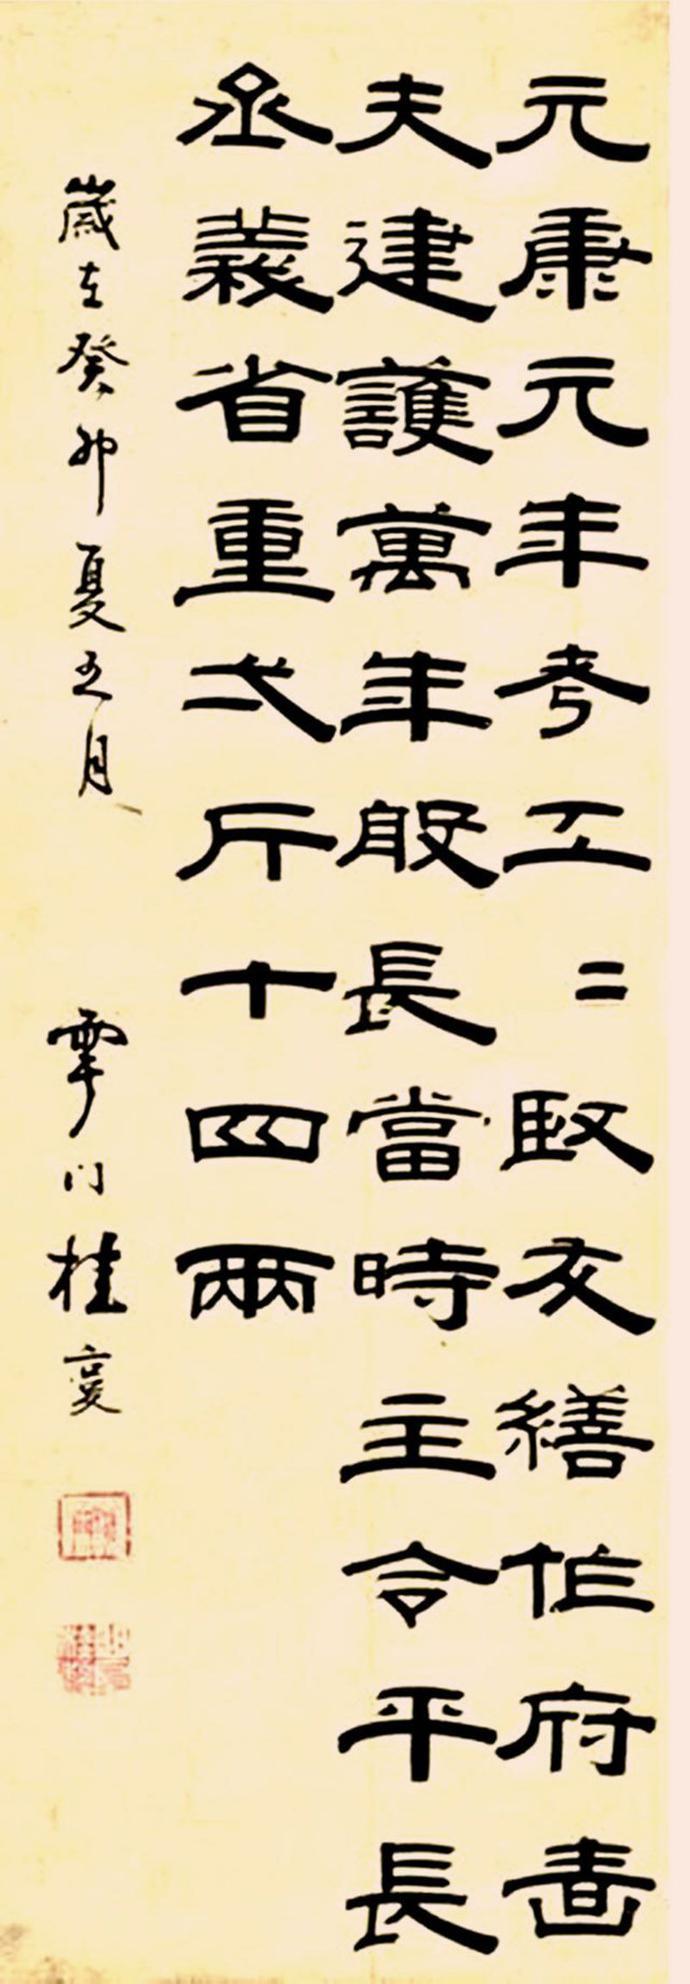 元康元年考工二臤友繕作府嗇
夫建護萬年般長當時主令平長
丞義省重弍斤十四兩
歲在癸卯夏五月 雩门桂复